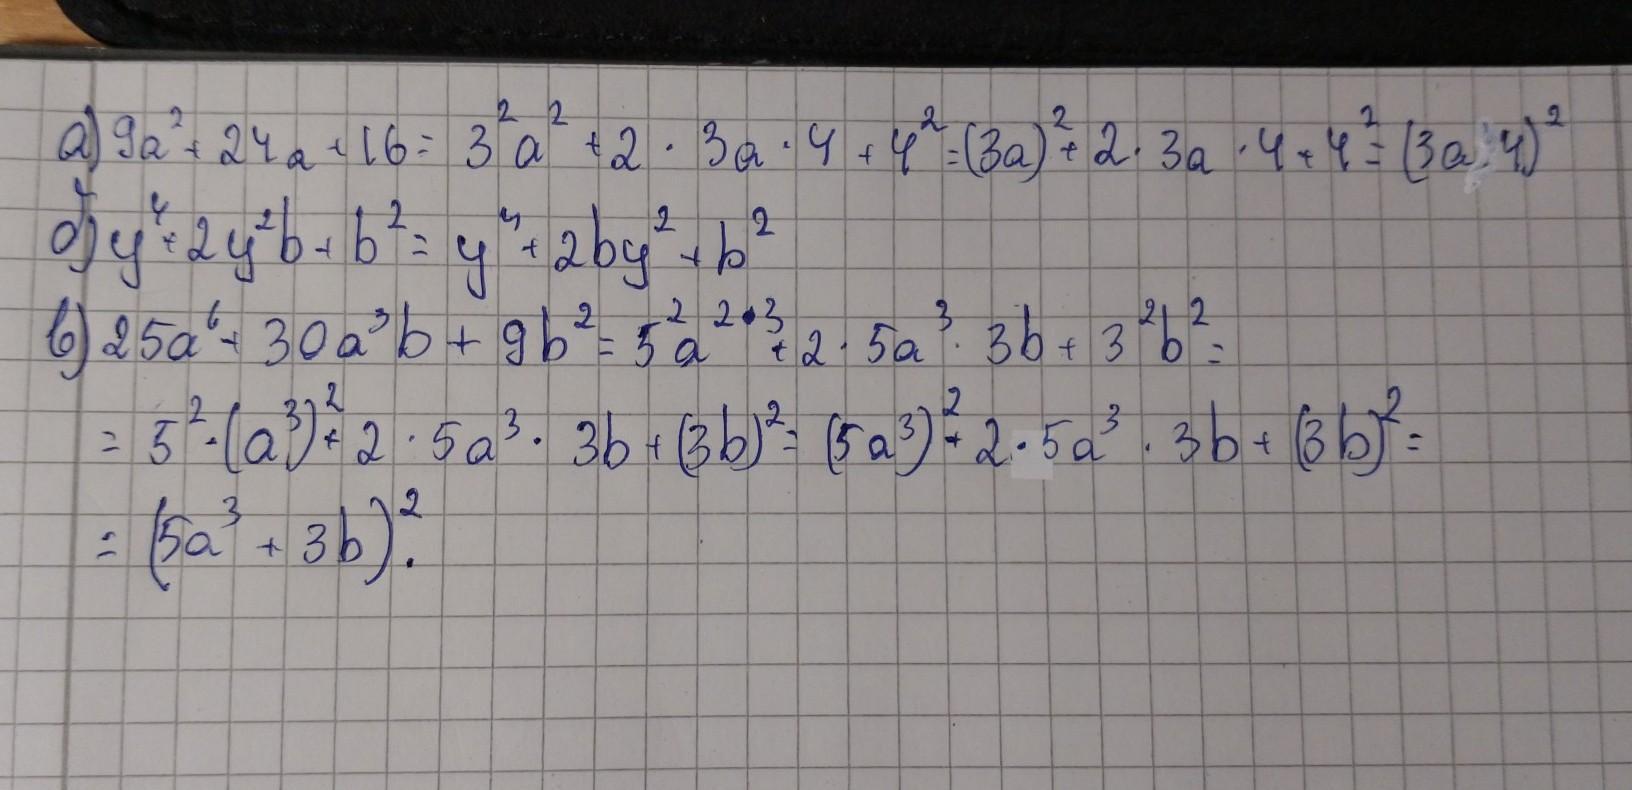 а) 9a² + 24a + 16 = 3²a² + 2 · 3a · 4 + 4² = (3a)² + 2 · 3a · 4 + 4² = (3a 4)²
б) y⁴ + 2y²b + b² = y⁴ + 2by² + b²
в) 25a⁶ + 30a³b + 9b² = 5²a²·³ + 2 · 5a³ · 3b + 3²b² =
= 5² · (a³)² + 2 · 5a³ · 3b + (3b)² = (5a³)² + 2 · 5a³ · 3b + (3b)² =
= (5a³ + 3b)².